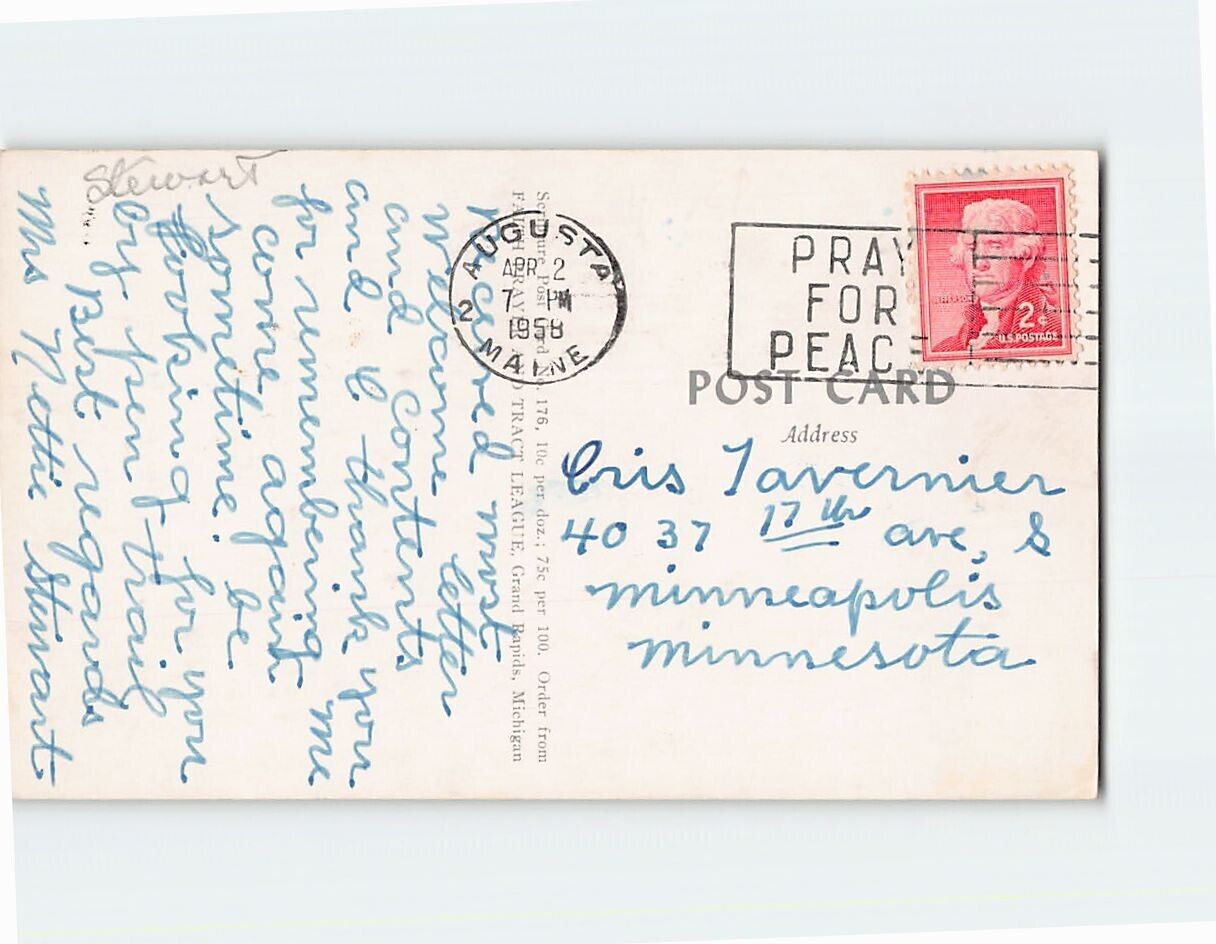 Stewart
Received most
welcome letter
and contents
and I thank you
for remembering me
come again
sometime. be
looking for you
by pen + trail
Best regards
Mrs Nettie Stewart
Scripture Post Card No. 176, 10c per doz.; 75c per 100. Order from
FAITH PRAYER & TRACT LEAGUE, Grand Rapids, Michigan
AUGUSTA
APR 2
7 PM
1958
2
MAINE
PRAY
FOR
PEACE
2¢
U.S. POSTAGE
POST CARD
Address
Cris Tavernier
4037 17th ave, S
minneapolis
minnesota